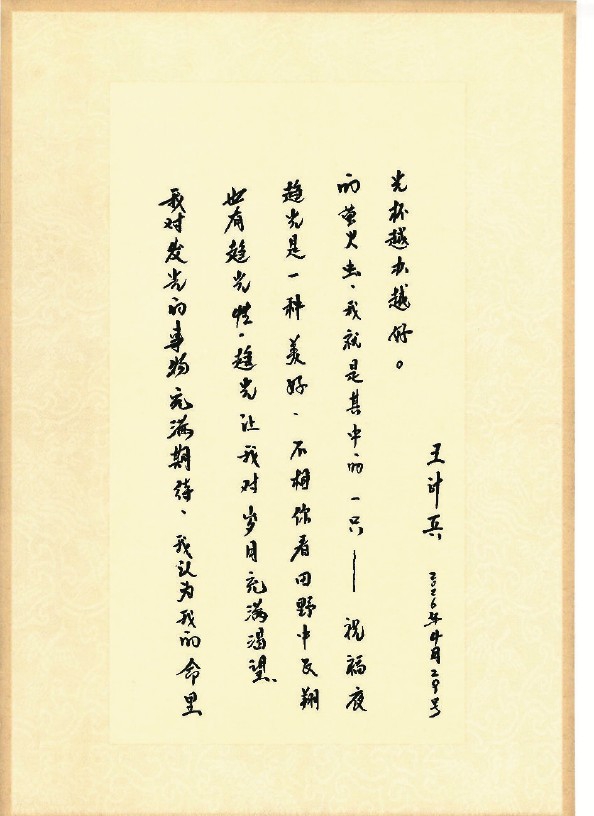 我对发光的事物充满期待、我认为我的命里
也有趋光性。趋光让我对岁月充满渴望、
趋光是一种美好、不相你看田野中飞翔
的萤火虫、我就是其中的一只——祝福夜
光杯越办越好。
王计兵 2026年4月29号